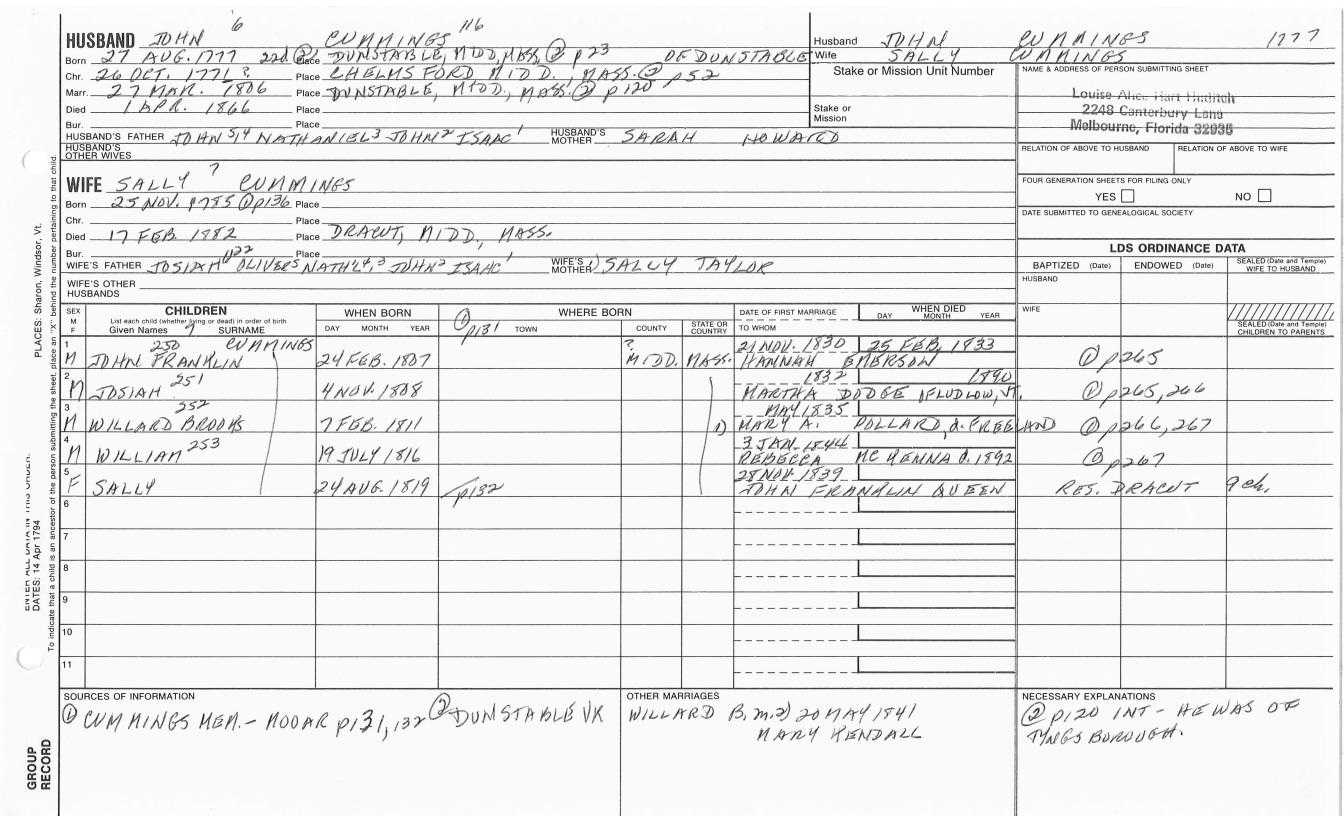 HUSBAND JOHN 6 CUMMINGS 116
Born 27 AUG. 1777 22d ② Place DUNSTABLE, MIDD, MASS. ② p23 OF DUNSTABLE
Chr. 26 OCT. 1771 ? Place CHELMSFORD MIDD., MASS. ② p52
Marr. 27 MAR. 1806 Place DUNSTABLE, MIDD., MASS. ② p120
Died 1 APR. 1866 Place
Bur. Place
HUSBAND'S FATHER JOHN 5,4 NATHANIEL 3 JOHN 2 ISAAC 1 HUSBAND'S MOTHER SARAH HOWARD
HUSBAND'S OTHER WIVES
Husband JOHN CUMMINGS 1777
Wife SALLY CUMMINGS
Stake or Mission Unit Number
Stake or Mission
NAME & ADDRESS OF PERSON SUBMITTING SHEET
Louise Alice Hart
2248 Canterbury Lane
Melbourne, Florida 32935
RELATION OF ABOVE TO HUSBAND RELATION OF ABOVE TO WIFE
FOUR GENERATION SHEETS FOR FILING ONLY
YES NO
DATE SUBMITTED TO GENEALOGICAL SOCIETY
WIFE SALLY 7 CUMMINGS
Born 25 NOV. 1785 ① p136 Place
Chr. Place
Died 17 FEB. 1882 Place DRACUT, MIDD., MASS.
Bur. Place
WIFE'S FATHER JOSIAH 6 122 OLIVER 5 NATH'L 4,3 JOHN 2 ISAAC 1 WIFE'S MOTHER 1) SALLY TAYLOR
WIFE'S OTHER HUSBANDS
LDS ORDINANCE DATA
BAPTIZED (Date) ENDOWED (Date) SEALED (Date and Temple) WIFE TO HUSBAND
HUSBAND
WIFE
SEALED (Date and Temple) CHILDREN TO PARENTS
SEX M F
CHILDREN
List each child (whether living or dead) in order of birth
Given Names 7 SURNAME
WHEN BORN
DAY MONTH YEAR
WHERE BORN
① p131 TOWN COUNTY STATE OR COUNTRY
DATE OF FIRST MARRIAGE
TO WHOM
WHEN DIED
DAY MONTH YEAR
1 250 CUMMINGS ? 21 NOV. 1830 25 FEB. 1833
M JOHN FRANKLIN 24 FEB. 1807 MIDD. MASS. HANNAH EMERSON ① p265
2 251 1832 1890
M JOSIAH 4 NOV. 1808 MARTHA DODGE OF LUDLOW, VT. ① p265,266
3 252 MAY 1835
M WILLARD BROOKS 7 FEB. 1811 1) MARY A. POLLARD, d. FREELAND ① p266,267
4 253 3 JAN. 1844
M WILLIAM 19 JULY 1816 REBECCA MCKENNA d. 1892 ① p267
5 28 NOV. 1839
F SALLY 24 AUG. 1819 p132 JOHN FRANKLIN QUEEN RES. DRACUT 9 ch.
6
7
8
9
10
11
SOURCES OF INFORMATION
① CUMMINGS MEM. - MOOAR p131,132 ② DUNSTABLE VR
OTHER MARRIAGES
WILLARD B, m. 2) 20 MAY 1841
MARY KENDALL
NECESSARY EXPLANATIONS
② p120 INT - HE WAS OF
TYNGSBOROUGH.
PLACES: Sharon, Windsor, Vt.
DATES: 14 Apr 1794
To indicate that a child is an ancestor of the person submitting the sheet, place an "X" behind the number pertaining to that child.
GROUP RECORD